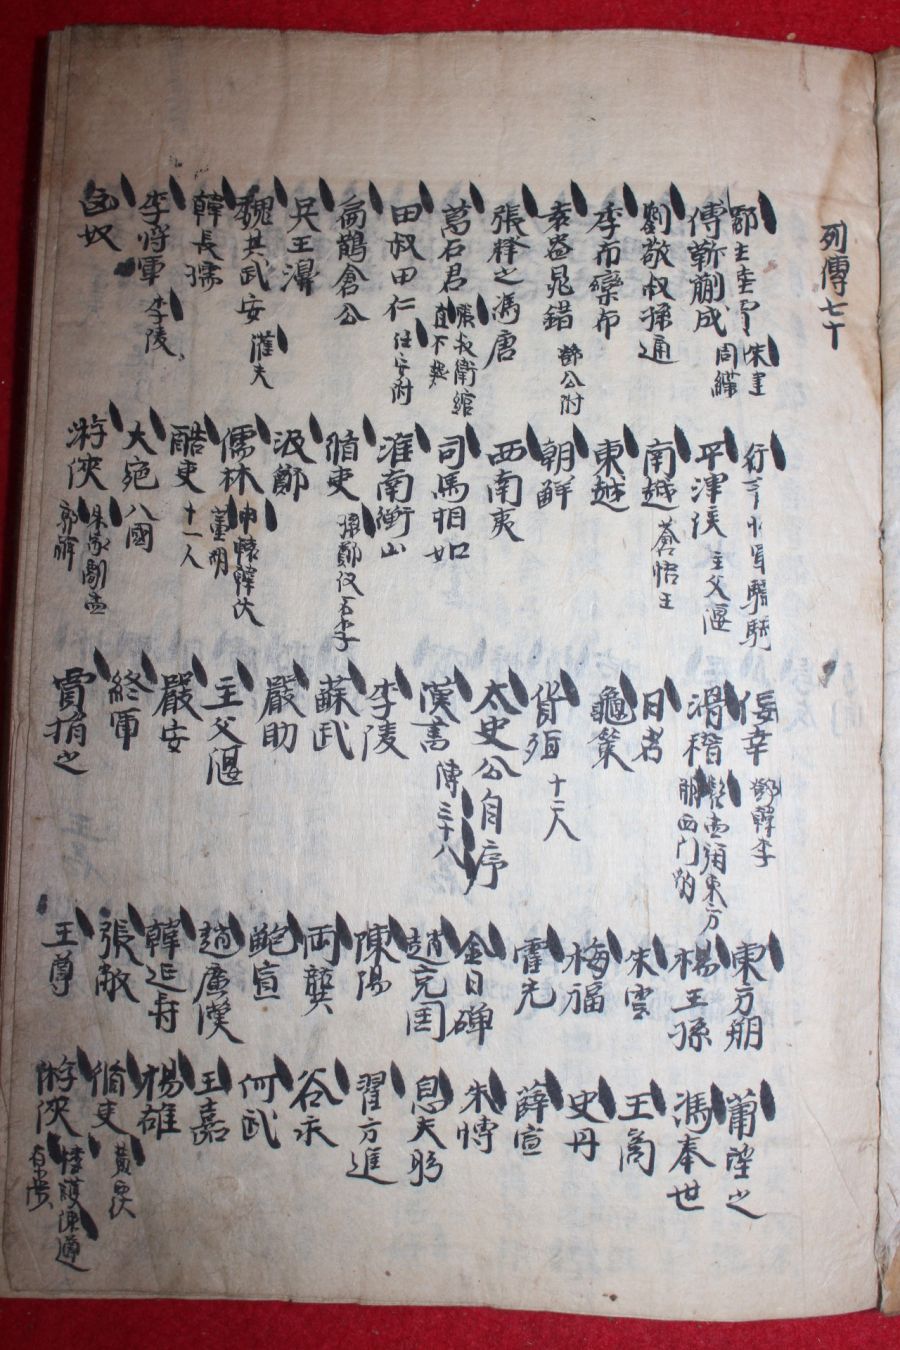 列傳七十
酈生陸賈 朱建
傅靳蒯成 周緤
劉敬叔孫通
季布欒布
袁盎晁錯 鄧公附
張釋之馮唐
萬石君 張叔衛綰 直不疑
田叔田仁 任安附
扁鵲倉公
吳王濞
魏其武安 灌夫
韓長孺
李將軍 李陵
匈奴
驃騎
平津侯 主父偃
南越 蒼梧王
東越
朝鮮
西南夷
司馬相如
淮南衡山
循吏 孫鄭公石李
汲鄭
儒林 申轅韓伏 董胡
酷吏 十一人
大宛 八國
游俠 朱家劇孟 郭解
佞幸 鄧韓李
滑稽 髡孟旃東方 朔西門豹
日者
龜策
貨殖 十二人
太史公自序
漢書 傳三十八
李陵
蘇武
嚴助
主父偃
嚴安
終軍
賈捐之
東方朔
楊王孫
朱雲
梅福
霍光
金日磾
趙充国
陳湯
両龔
鮑宣
趙廣漢
韓延壽
張敞
王尊
蕭望之
馮奉世
王商
史丹
薛宣
朱博
息夫躬
翟方進
谷永
何武
王嘉
楊雄
循吏 黃霸
游俠 樓護陳遵